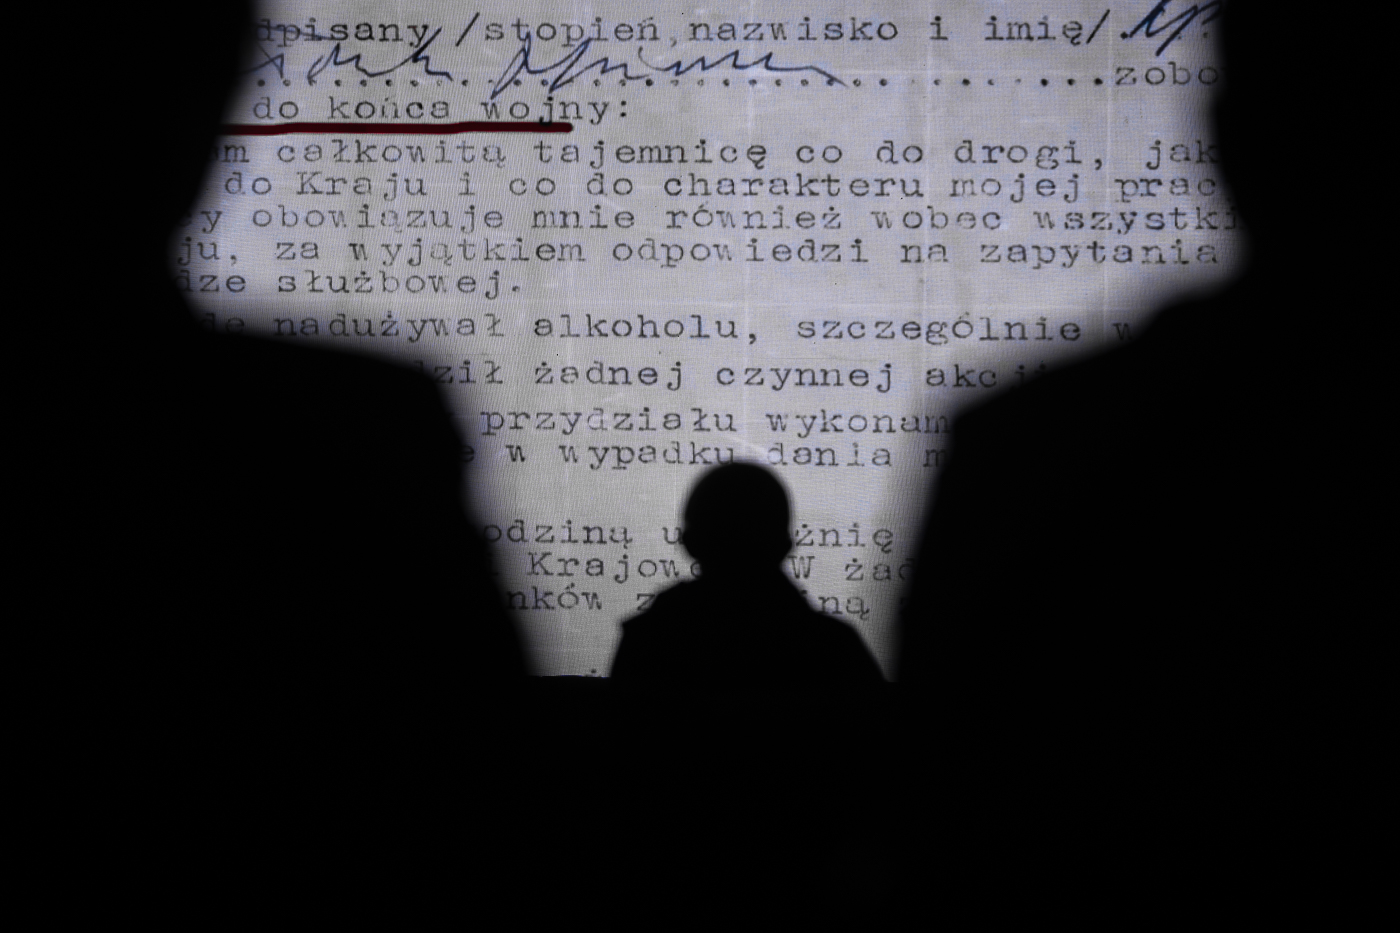 dpisany /stopień,nazwisko i imię/
zobo
do końca wojny:
m całkowitą tajemnicę co do drogi, jak
do Kraju i co do charakteru mojej prac
y obowiązuje mnie również wobec wszystki
ju, za wyjątkiem odpowiedzi na zapytania
dze służbowej.
de nadużywał alkoholu, szczególnie w
ził żadnej czynnej akcji
przydziału wykonam
e w wypadku dania m
odziną u źnię
Krajowe W żad
nków z iną